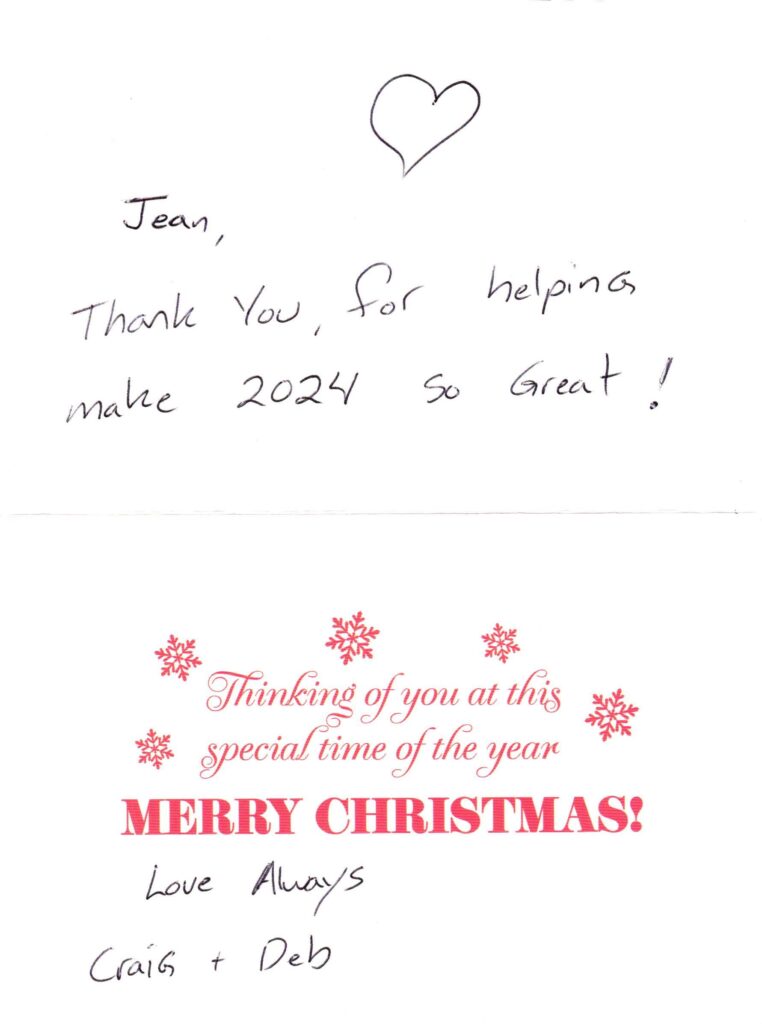 Jean,
Thank You, for helping
make 2024 so Great!
Thinking of you at this
special time of the year
MERRY CHRISTMAS!
Love Always
Craig + Deb